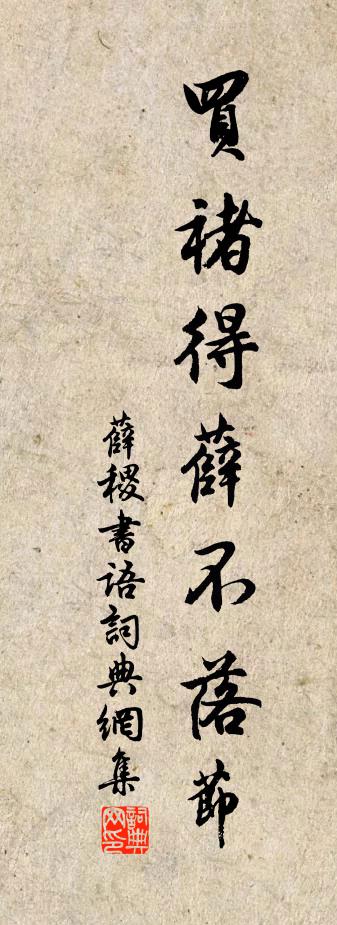 買褚得薛不落節
薛稷書语詞典網集
詞典
网印